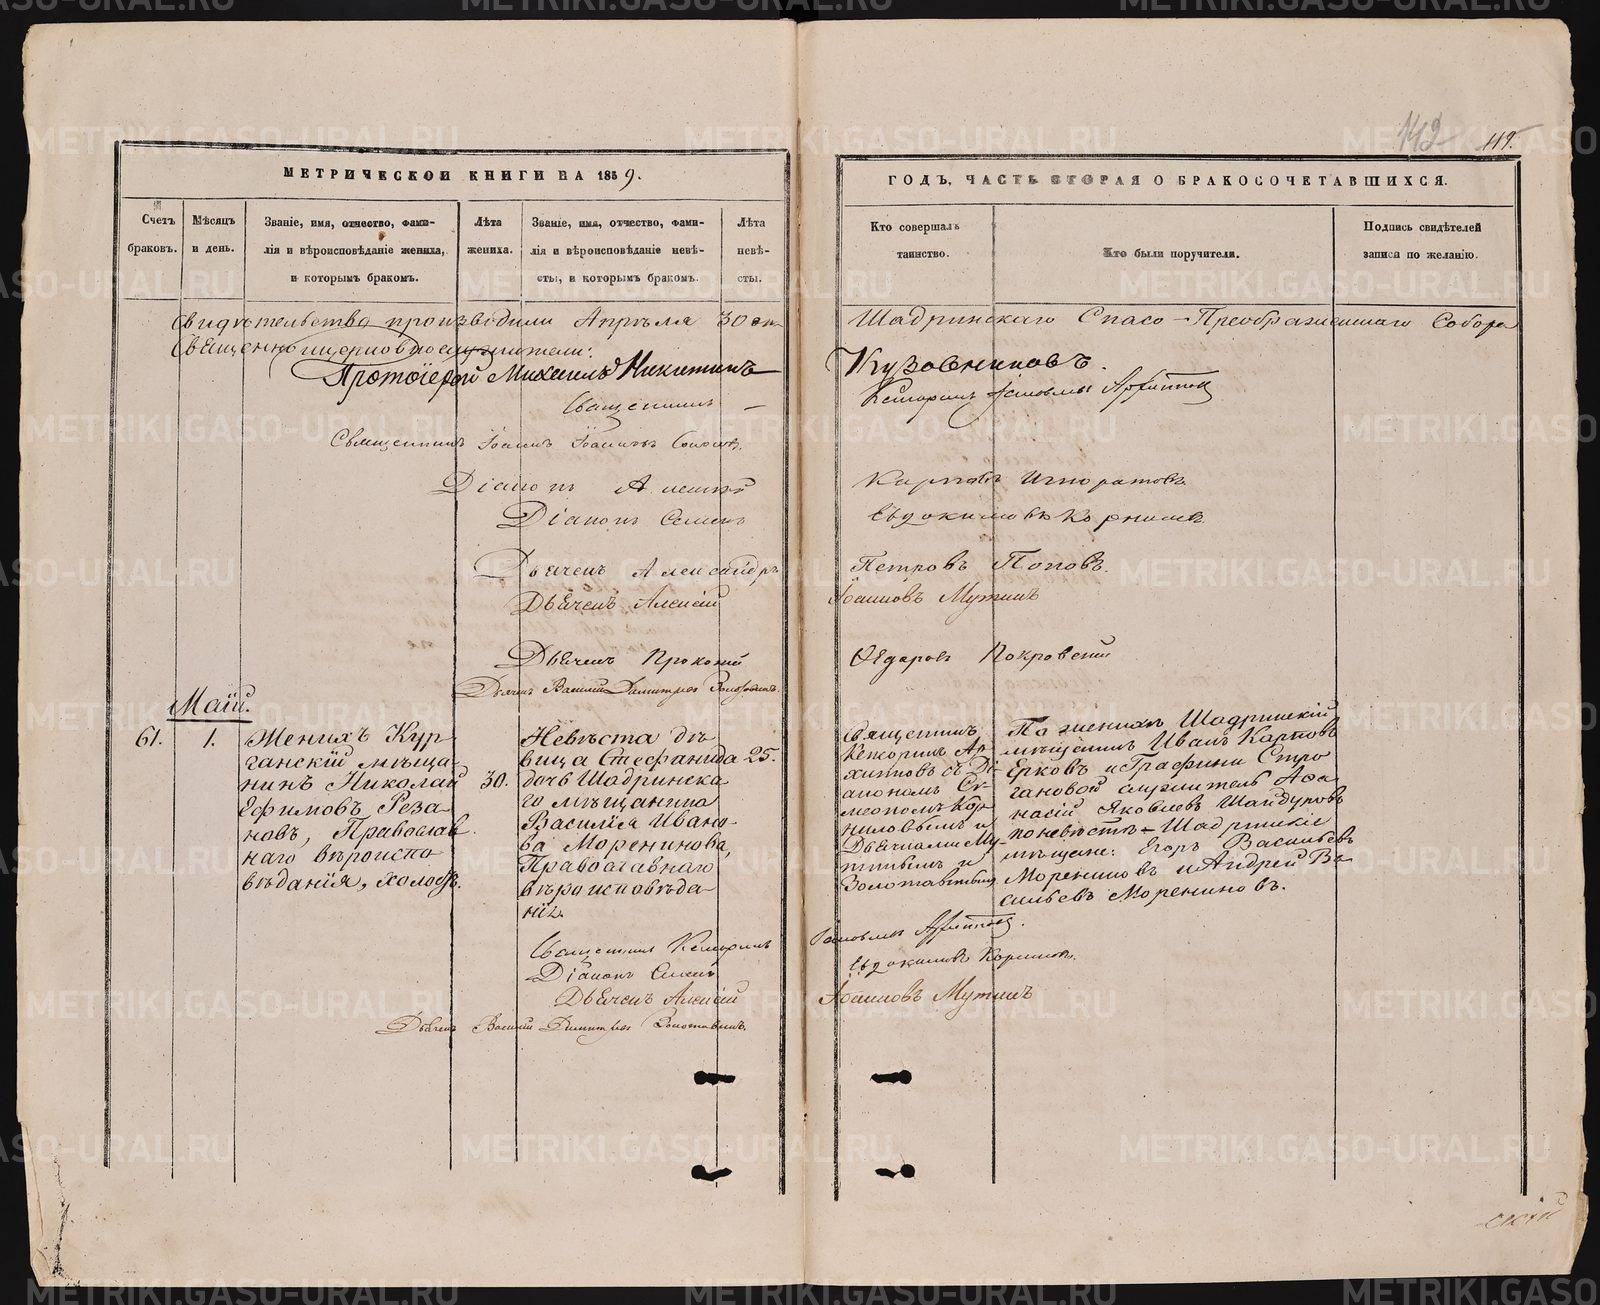 142
119.
МЕТРИЧЕСКОЙ КНИГИ НА 1859.
ГОДЪ, ЧАСТЬ ВТОРАЯ О БРАКОСОЧЕТАВШИХСЯ.
Счетъ браковъ.
Мѣсяцъ и день.
Званіе, имя, отчество, фами-
лія и вѣроисповѣданіе жениха,
и которымъ бракомъ.
Лѣта жениха.
Званіе, имя, отчество, фами-
лія и вѣроисповѣданіе невѣ-
сты, и которымъ бракомъ.
Лѣта невѣ-
сты.
Кто совершалъ
таинство.
Кто были поручители.
Подпись свидѣтелей
записи по желанію.
Свидѣтельство производили Апрѣля 30 дня Шадринскаго Спасо-Преображенскаго Собора
Священно
Протоіерей Михаилъ Никитинъ Кузовниковъ.
Священникъ
Священникъ Іоаннъ Іоанновъ
Діаконъ Алексѣй Карповъ Игноратовъ
Діаконъ Семенъ Евдокимовъ Корниловъ
Дьячекъ Александръ Петровъ Поповъ.
Дьячекъ Алексій Іоанновъ Мутинъ
Дьячекъ Прокопій Ѳедоровъ Покровскій
Дьячекъ Василій Димитріевъ Золотавинъ.
Маій.
61.
1.
Женихъ Кур
ганскій мѣща
нинъ Николай
Ефимовъ Реза
новъ, Православ
наго вѣроиспо
вѣданія, холостъ.
30.
Невѣста дѣ
вица Стефанида
дочь Шадринска
го мѣщанина
Василія Ивано
ва Моренинова,
Православнаго
вѣроисповѣда
нія.
25.
Священникъ
Кенсоринъ Ар
хиповъ съ Ді
акономъ Си
меономъ Кор
ниловымъ и
Дьячками Му
тинымъ и
Золотавинымъ
По женихѣ Шадринскій
мѣщанинъ Иванъ Карповъ
Ерковъ и Графини Стро
гановой служитель Афа
насій Яковлевъ Шайдуровъ
по невѣстѣ – Шадринскіе
мѣщане: Егоръ Васильевъ
Морениновъ и Андрей Ва
сильевъ Морениновъ.
Священникъ Кенсоринъ
Діаконъ Симеонъ Евдокимовъ Корниловъ.
Дьячекъ Алексій Іоанновъ Мутинъ
Дьячекъ Василій Димитріевъ Золотавинъ.
METRIKI.GASO-URAL.RU